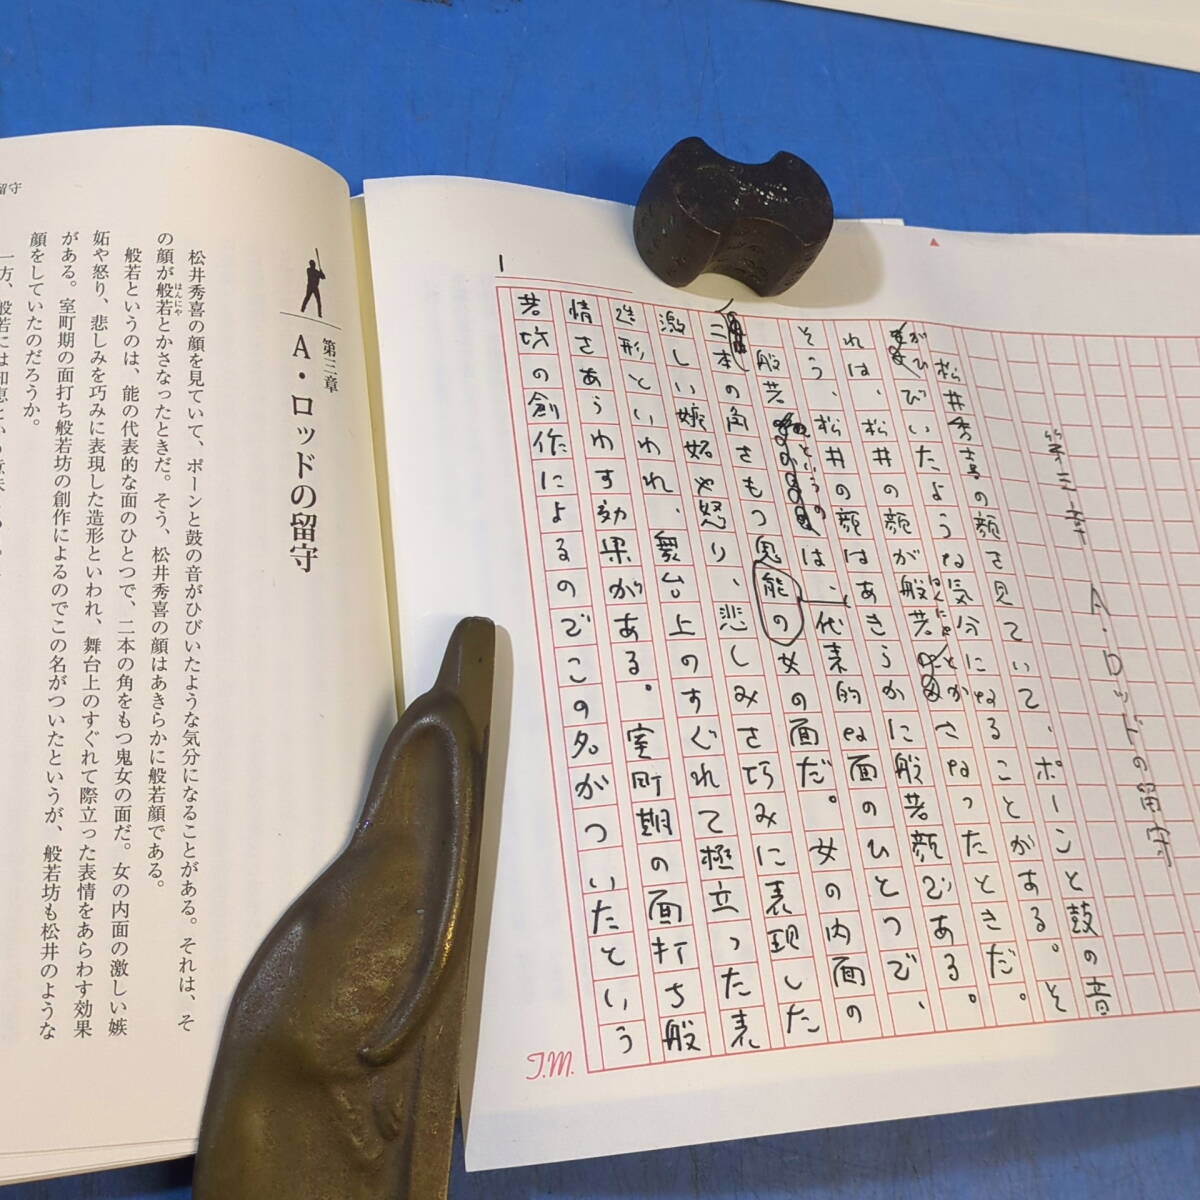 留守
第三章
A・ロッドの留守
松井秀喜の顔を見ていて、ポーンと鼓の音がひびいたような気分になることがある。それは、そ
の顔が般若とかさなったときだ。そう、松井秀喜の顔はあきらかに般若顔である。
はんにゃ
般若というのは、能の代表的な面のひとつで、二本の角をもつ鬼女の面だ。女の内面の激しい嫉
妬や怒り、悲しみを巧みに表現した造形といわれ、舞台上のすぐれて際立った表情をあらわす効果
がある。室町期の面打ち般若坊の創作によるのでこの名がついたというが、般若坊も松井のような
顔をしていたのだろうか。
一方、般若には知恵という意味
1
第三章 A・ロッドの留守
松井秀喜の顔を見ていて、ポーンと鼓の音
がひびいたような気分になることがある。そ
れは、松井の顔が般若とかさなったときだ。
はんにゃ
そう、松井の顔はあきらかに般若顔である。
般若というのは、能の代表的な面のひとつで、
二本の角をもつ鬼女の面だ。女の内面の
激しい嫉妬や怒り、悲しみを巧みに表現した
造形といわれ、舞台上のすぐれて極立った表
情をあらわす効果がある。室町期の面打ち般
若坊の創作によるのでこの名がついたという
T.M.